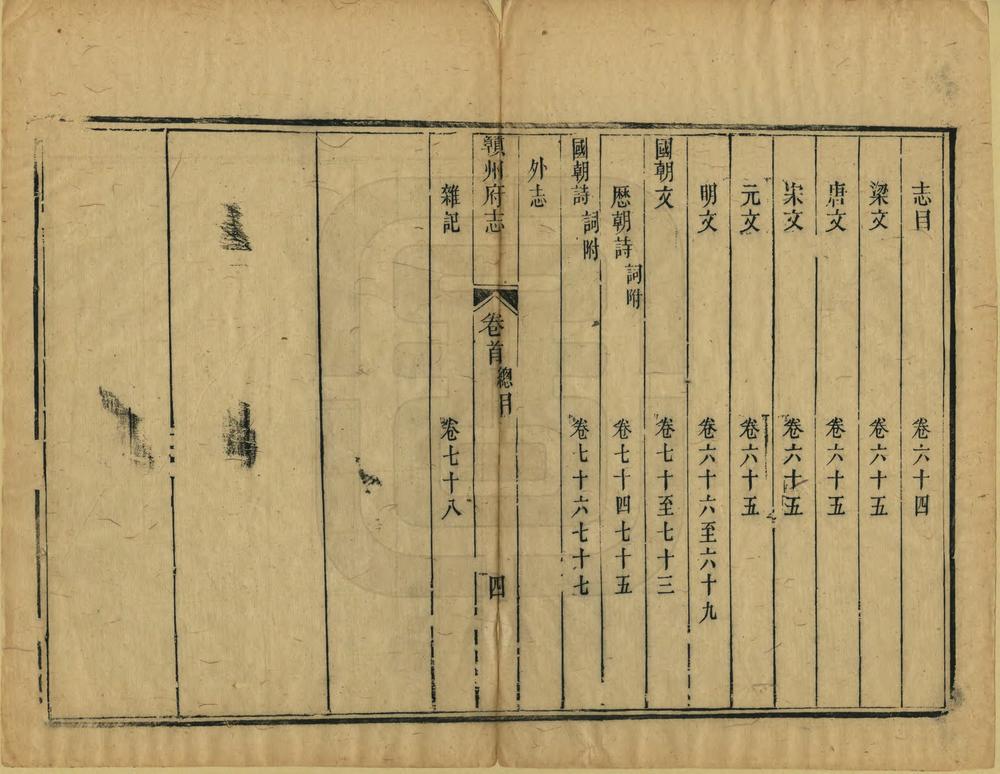 志目 卷六十四
梁文 卷六十五
唐文 卷六十五
宋文 卷六十五
元文 卷六十五
明文 卷六十六至六十九
國朝文 卷七十至七十三
歷朝詩 詞附 卷七十四七十五
國朝詩 詞附 卷七十六七十七
外志
贛州府志 卷首 總目 四
雜記 卷七十八